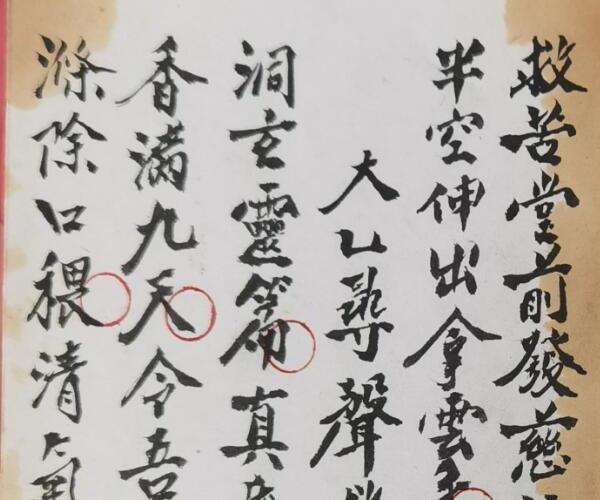 救苦堂前發慈
半空伸出拿雲手
大乙尋聲
洞玄靈篇真
香滿九天令吾
滌除口穢清氣